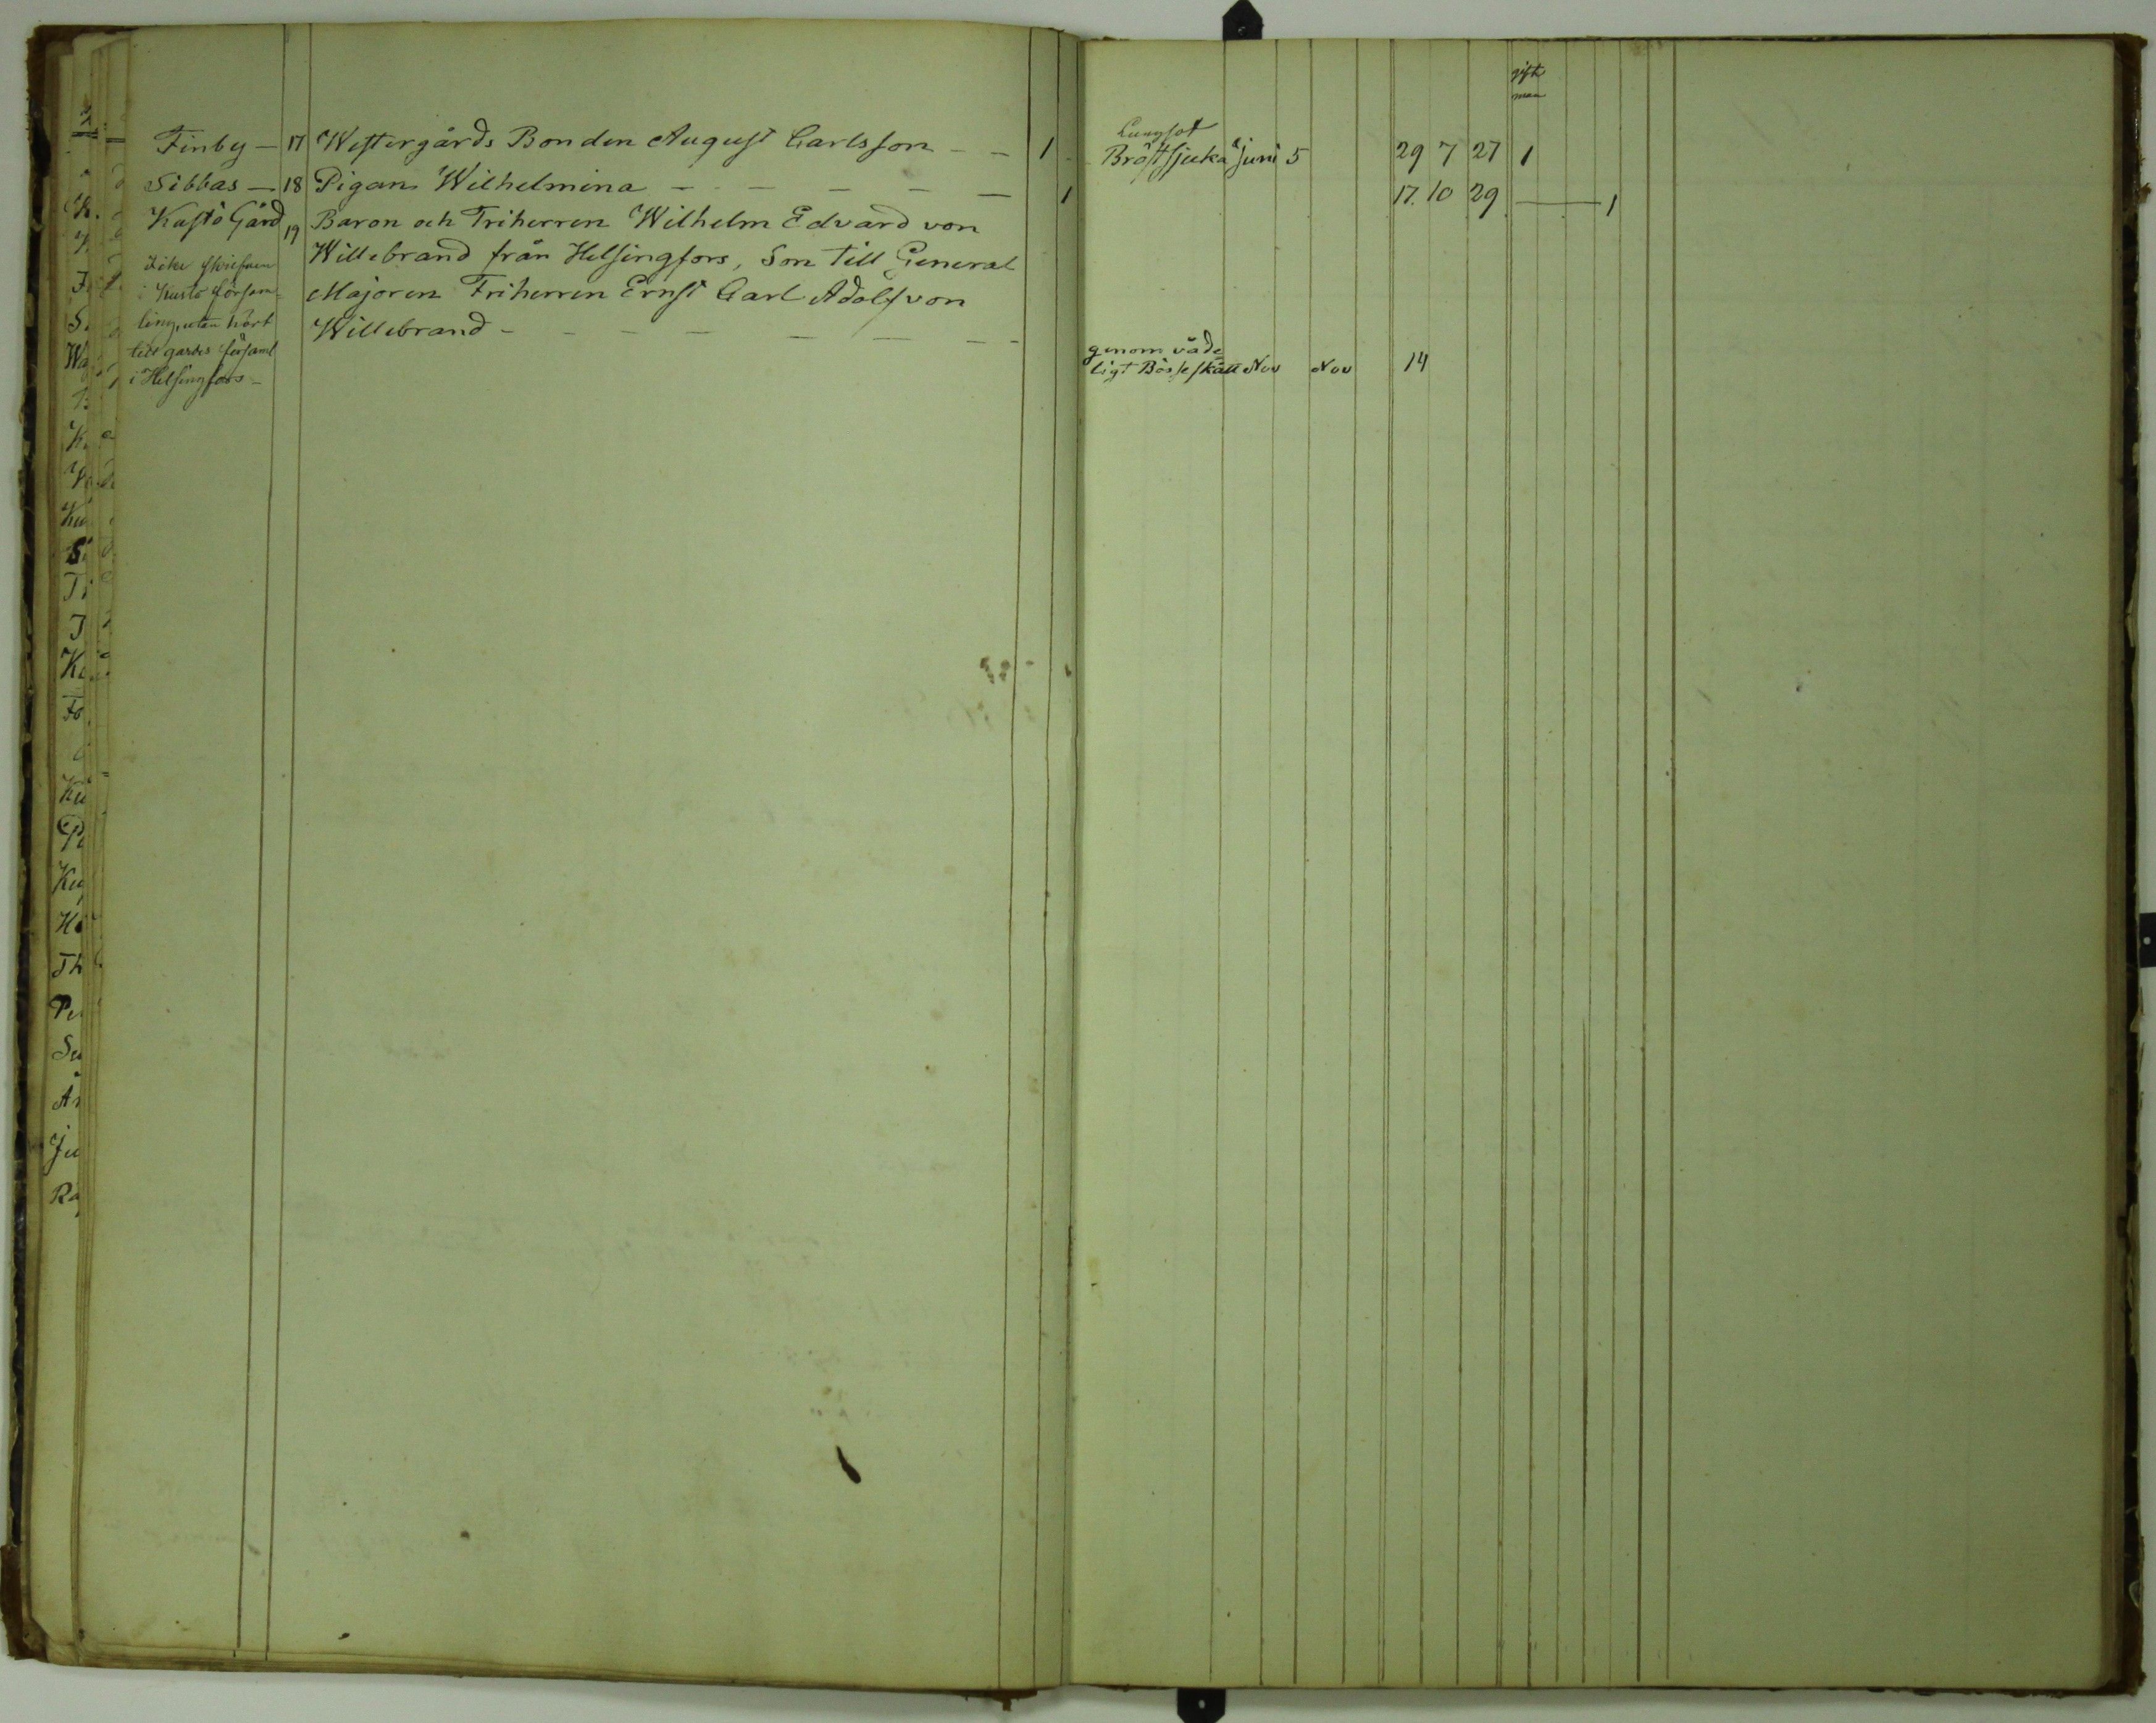 gift
man
Lungsot
Finby — 17 Westergårds Bonden August Carlsson - - 1 Bröstsjuka Juni 5 29 7 27 1
Sibbas — 18 Pigan Wilhelmina - - - - - 1 17. 10 29 — 1
Kustö Gård 19 Baron och Friherren Wilhelm Edvard von
Willebrand från Helsingfors, Son till General
Icke skrifven
i Kustö försam=
Majoren Friherren Ernst Carl Adolf von
ling, utan hört
Willebrand - - - - - - -
till gardes församl
i Helsingfors -
genom våde
ligt Bösseskått Nov Nov 14